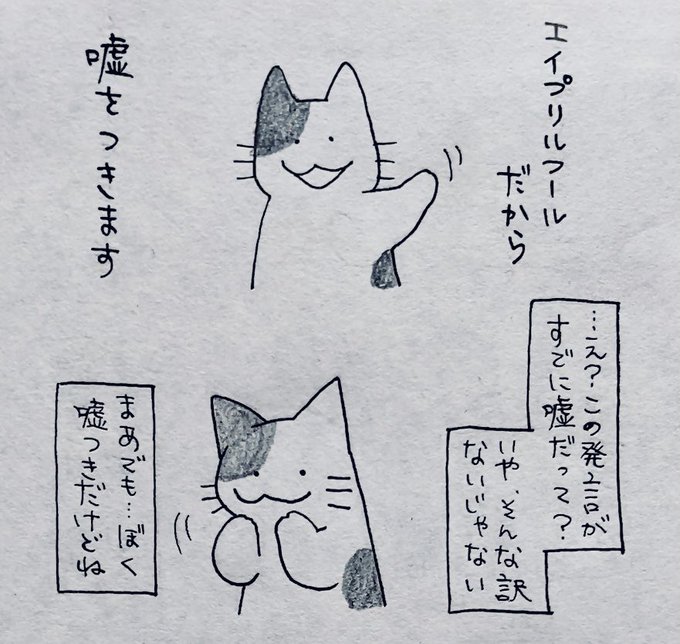 エイプリルフール
だから
嘘をつきます
…え？この発言が
すでに嘘だって？
いや、そんな訳
ないじゃない
まあでも…ぼく
嘘つきだけどね